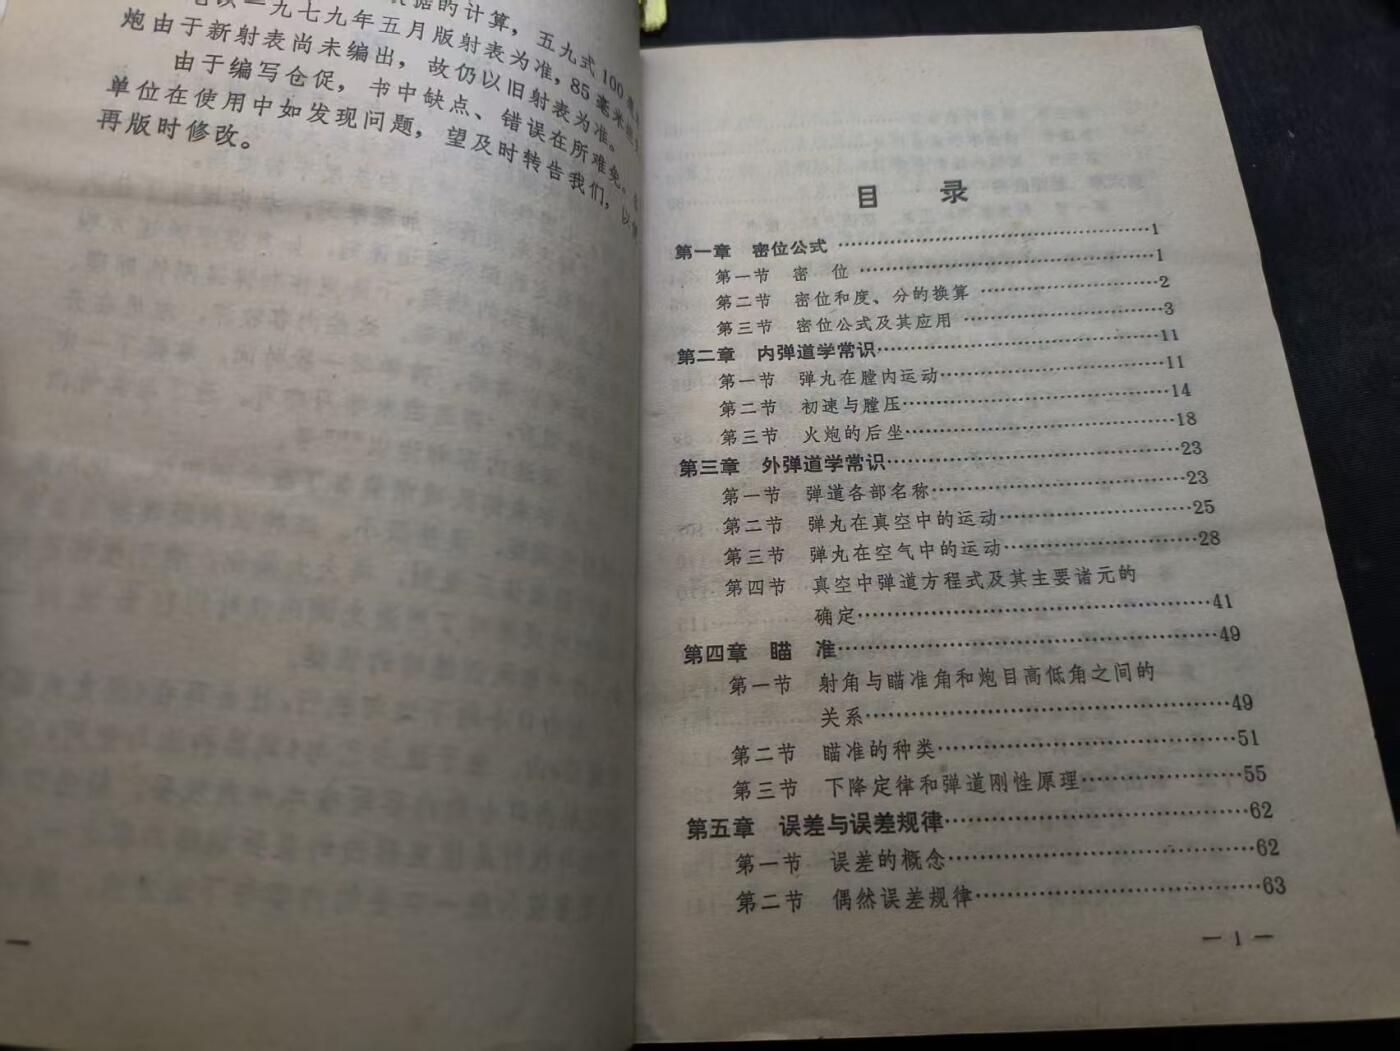 据的计算，五九式100
一九七九年五月版射表为准，85毫米
炮由于新射表尚未编出，故仍以旧射表为准。
由于编写仓促，书中缺点、错误在所难免。
单位在使用中如发现问题，望及时转告我们，以
再版时修改。
目 录
第一章 密位公式……1
第一节 密 位……1
第二节 密位和度、分的换算……2
第三节 密位公式及其应用……3
第二章 内弹道学常识……11
第一节 弹丸在膛内运动……11
第二节 初速与膛压……14
第三节 火炮的后坐……18
第三章 外弹道学常识……23
第一节 弹道各部名称……23
第二节 弹丸在真空中的运动……25
第三节 弹丸在空气中的运动……28
第四节 真空中弹道方程式及其主要诸元的
确定……41
第四章 瞄 准……49
第一节 射角与瞄准角和炮目高低角之间的
关系……49
第二节 瞄准的种类……51
第三节 下降定律和弹道刚性原理……55
第五章 误差与误差规律……62
第一节 误差的概念……62
第二节 偶然误差规律……63
— 1 —